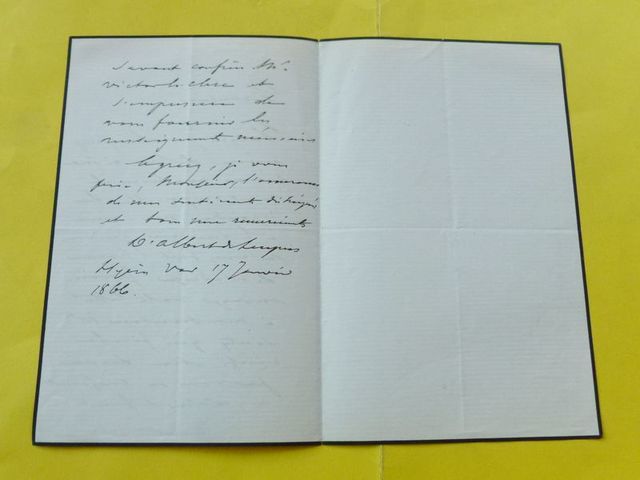 savant confrère Mr.
victor le clerc et
s'empressera de
vous fournir les
renseignements nécessaires
Agréez, je vous
prie, Monsieur, l'assurance
de mes sentiments distingués
et tous mes remerciements
Dr albert de
Hyères Var 17 Janvier
1866.